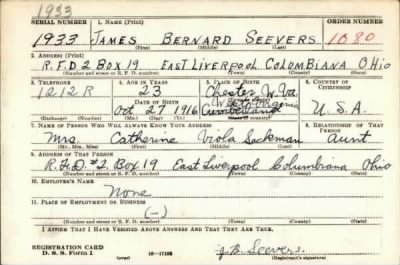 1933
SERIAL NUMBER 1. NAME (Print) ORDER NUMBER
1933 JAMES BERNARD SEEVERS 1080
(First) (Middle) (Last)
2. ADDRESS (Print)
R.F.D. 2 BOX 19 EAST LIVERPOOL COLUMBIANA OHIO
(Number and street or R. F. D. number) (Town) (County) (State)
3. TELEPHONE 4. AGE IN YEARS 5. PLACE OF BIRTH 6. COUNTRY OF CITIZENSHIP
1212 R 23 Chester W. Va.
DATE OF BIRTH West Virginia
Oct 27 1916 Cumberland U.S.A.
(Exchange) (Number) (Mo.) (Day) (Yr.) (State or country)
7. NAME OF PERSON WHO WILL ALWAYS KNOW YOUR ADDRESS 8. RELATIONSHIP OF THAT PERSON
Mrs. Catherine Viola Seckman Aunt
(Mr., Mrs., Miss) (First) (Middle) (Last)
9. ADDRESS OF THAT PERSON
R.F.D. #2 Box 19 East Liverpool Columbiana Ohio
(Number and street or R. F. D. number) (Town) (County) (State)
10. EMPLOYER'S NAME
None
11. PLACE OF EMPLOYMENT OR BUSINESS
(-)
(Number and street or R. F. D. number) (Town) (County) (State)
I AFFIRM THAT I HAVE VERIFIED ABOVE ANSWERS AND THAT THEY ARE TRUE.
REGISTRATION CARD
D. S. S. Form 1 (over) 16—17105 J.B. Seevers
(Registrant's signature)